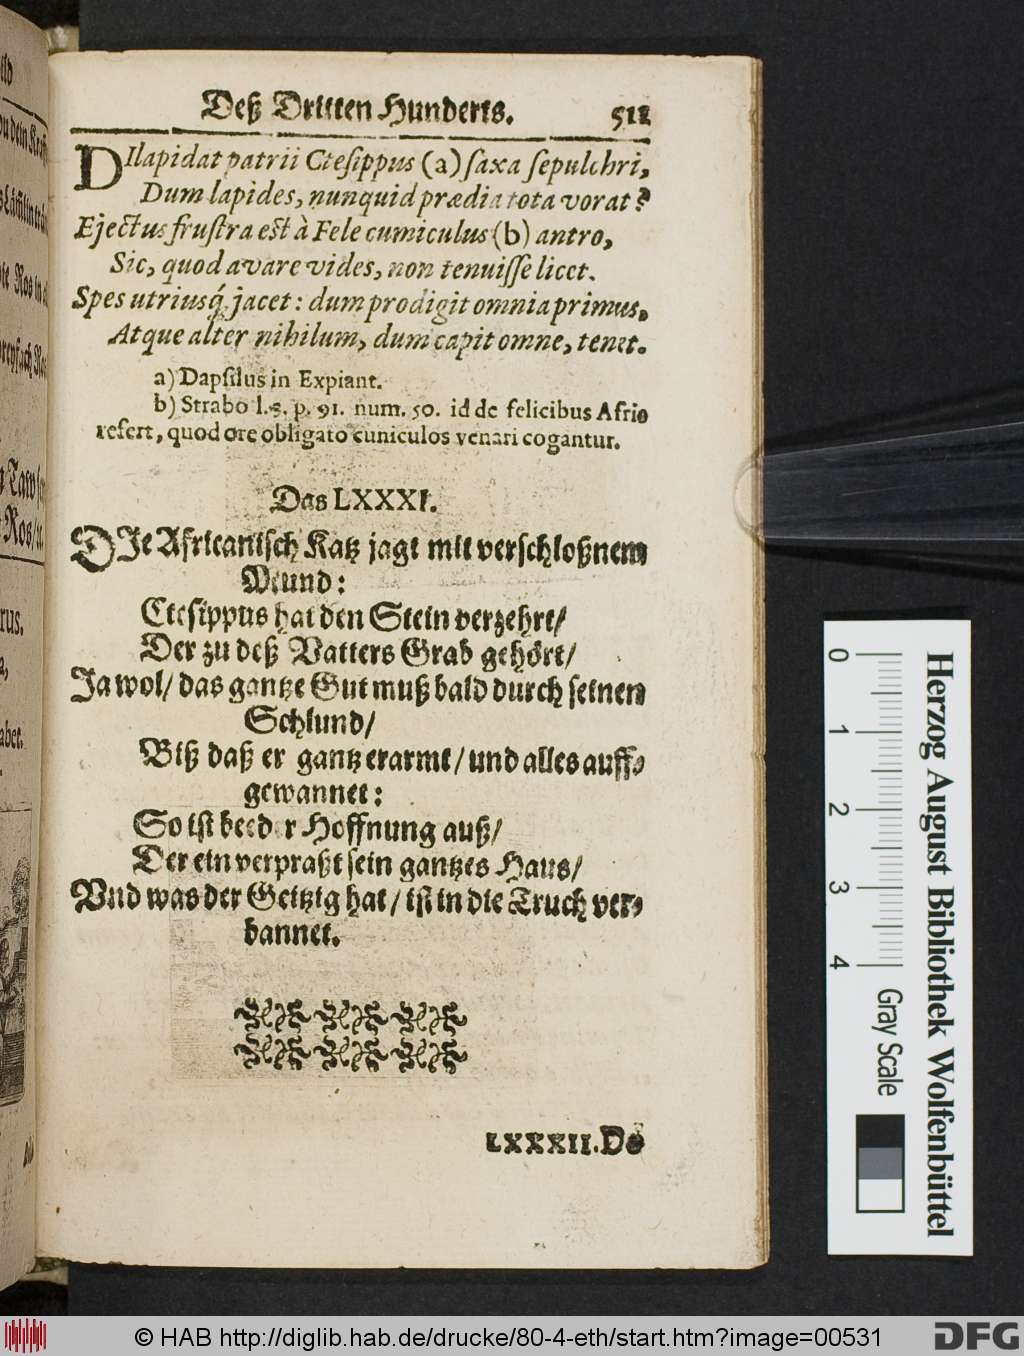 Deß Dritten Hunderts. 511
DIlapidat patrii Ctesippus (a) saxa sepulchri,
Dum lapides, nunquid prædia tota vorat?
Ejectus frustra est à Fele cumiculus (b) antro,
Sic, quod avare vides, non tenuisse licet.
Spes utriusq́; jacet: dum prodigit omnia primus,
Atque alter nihilum, dum capit omne, tenet.
a) Dapsilus in Expiant.
b) Strabo l. 3. p. 91. num. 50. id de felicibus Afris
refert, quod ore obligato cuniculos venari cogantur.
Das LXXXI.
DIe Africanisch Katz jagt mit verschloßnem
Mund:
Ctesippus hat den Stein verzehrt/
Der zu deß Vatters Grab gehört/
Ja wol/ das gantze Gut muß bald durch seinen
Schlund/
Biß daß er gantz erarmt/ und alles auff-
gewannet:
So ist beeder Hoffnung auß/
Der ein verpraßt sein gantzes Haus/
Und was der Geitzig hat/ ist in die Truch ver-
bannet.
LXXXII. De
0 1 2 3 4
Gray Scale
Herzog August Bibliothek Wolfenbüttel
© HAB http://diglib.hab.de/drucke/80-4-eth/start.htm?image=00531
DFG